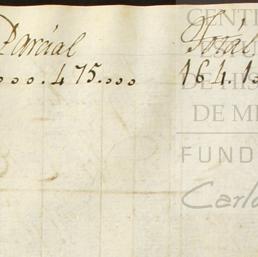 Parcial Totál
....475.... 164.1
CENT
DE HIS
DE M
FUND
Carlo